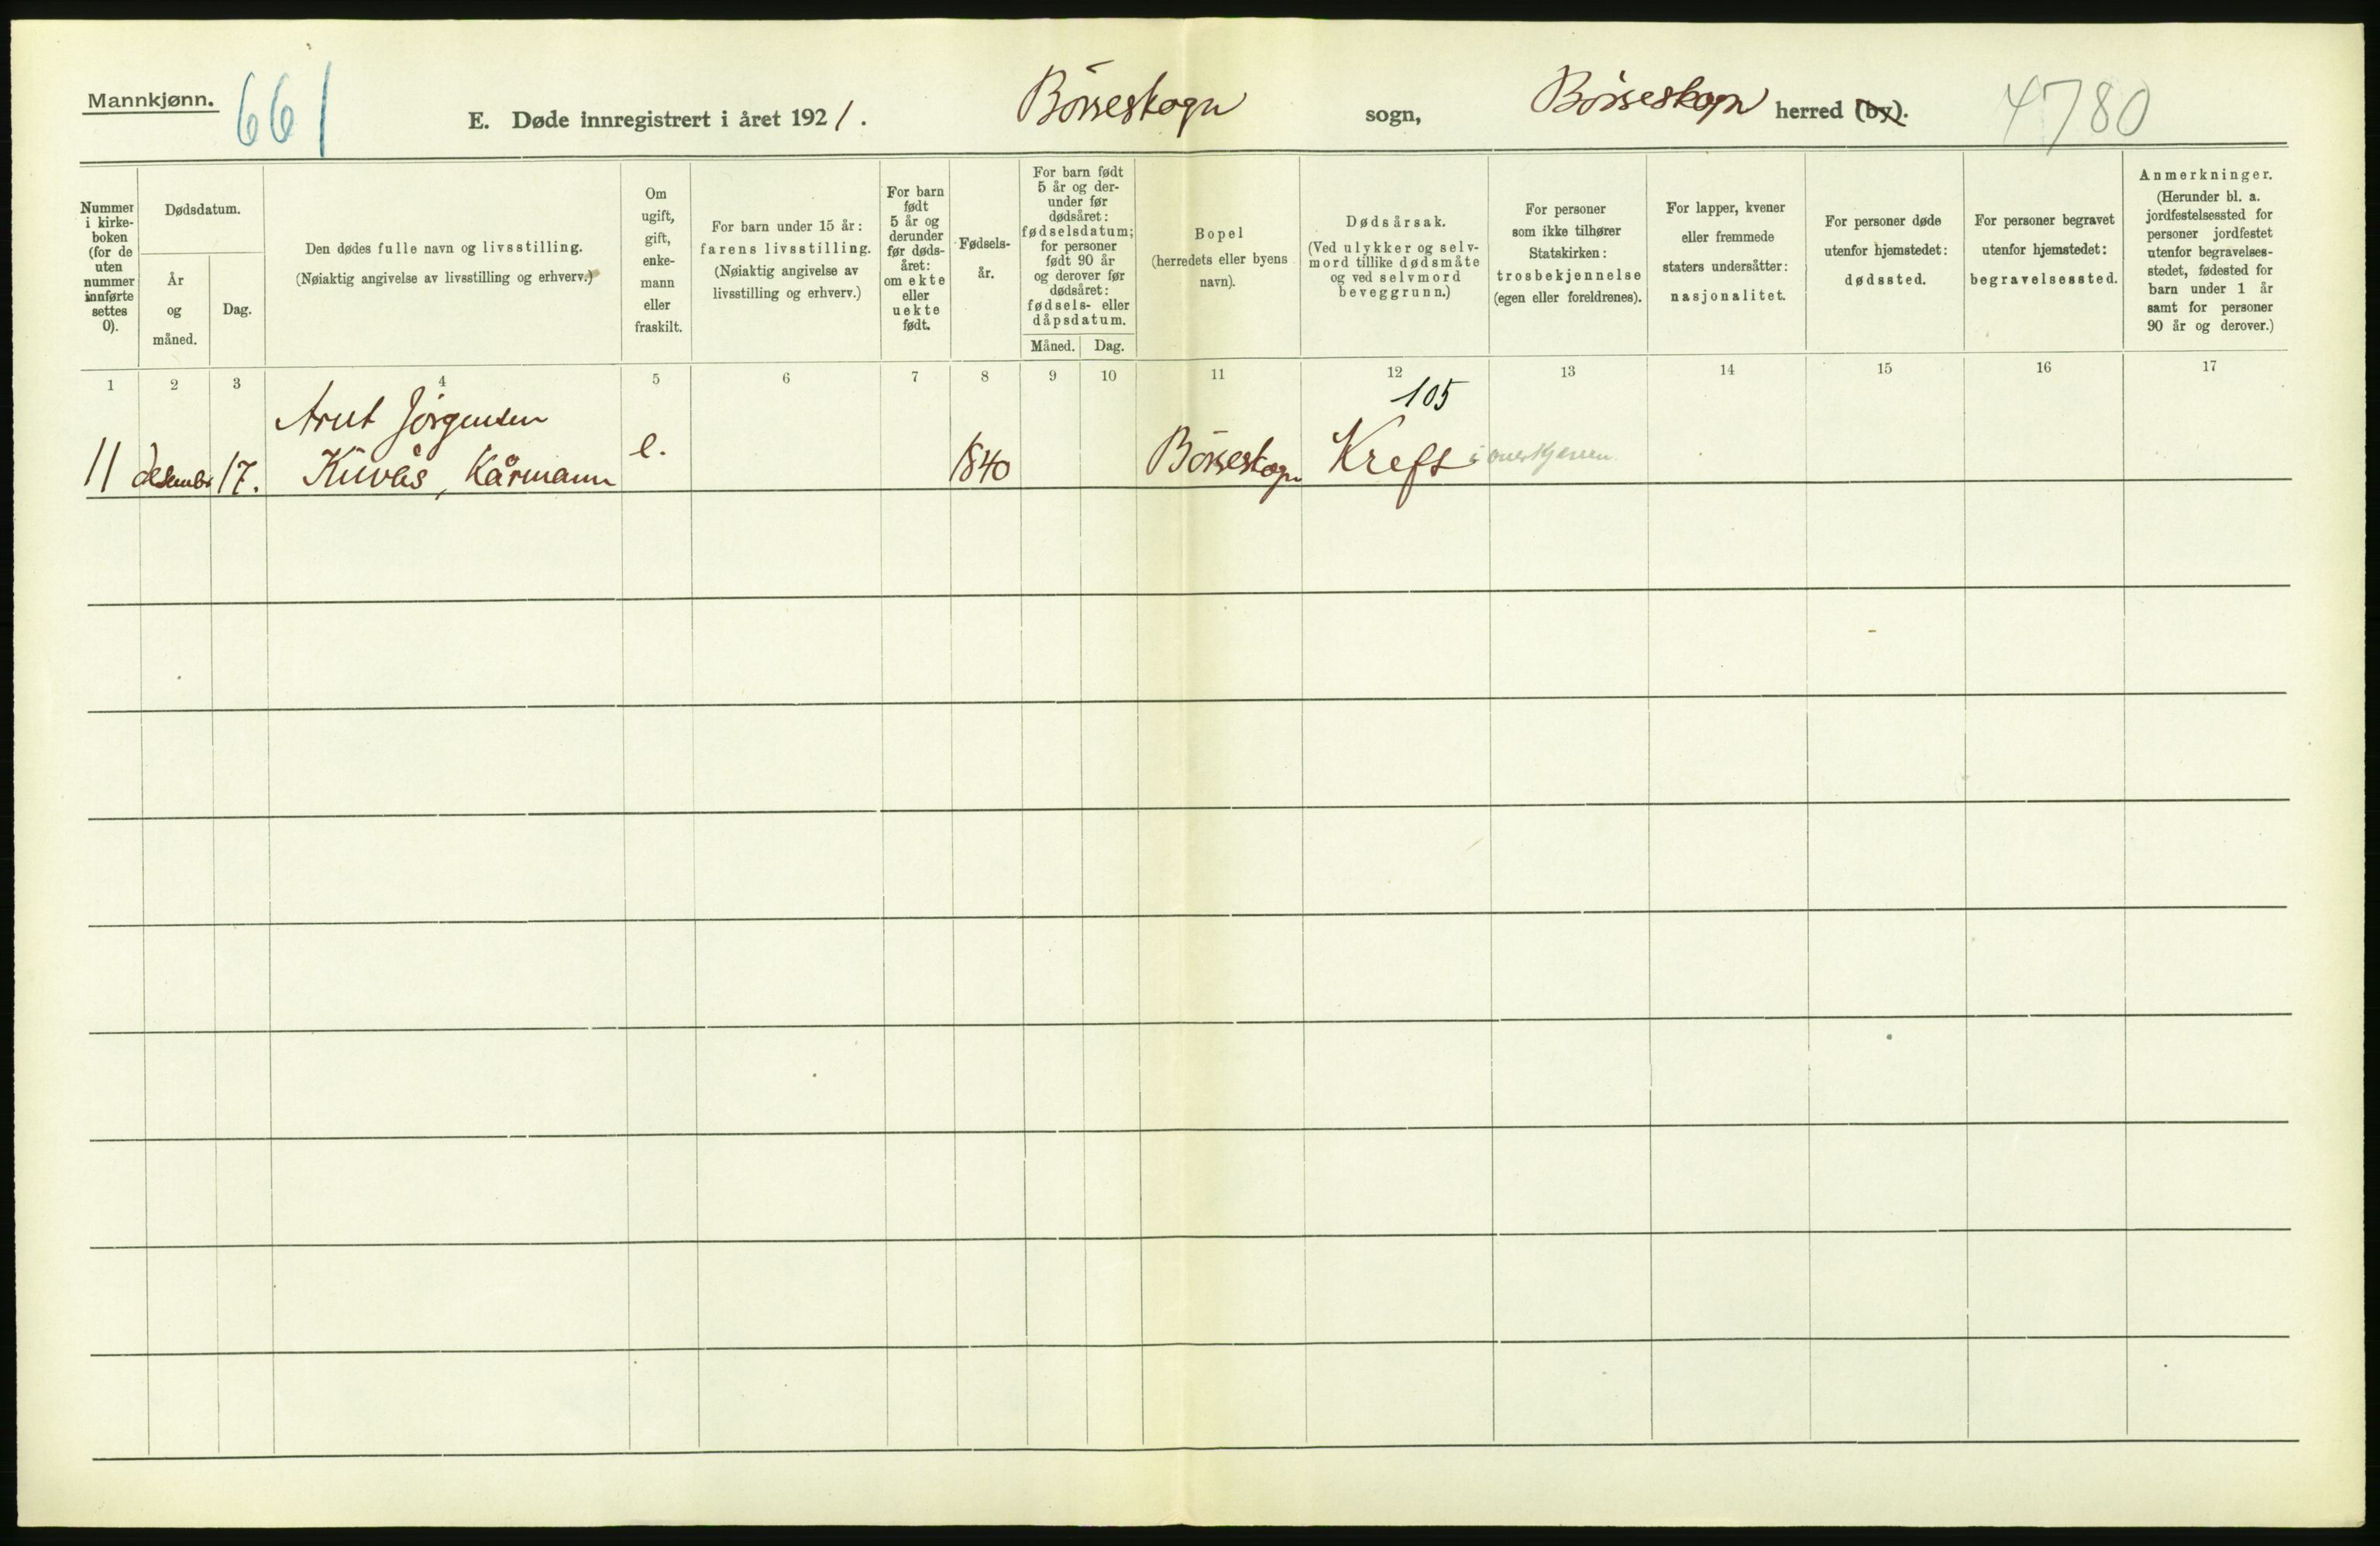 Mannkjønn.
661
E. Døde innregistrert i året 1921.
Börseskogn sogn,
Börseskogn herred (by).
4780
Nummer i kirke-boken (for de uten nummer innførte settes 0).
Dødsdatum.
År og måned.
Dag.
Den dødes fulle navn og livsstilling.
(Nøiaktig angivelse av livsstilling og erhverv.)
Om ugift, gift, enke-mann eller fraskilt.
For barn under 15 år:
farens livsstilling.
(Nøiaktig angivelse av
livsstilling og erhverv.)
For barn født 5 år og derunder før døds-året: om ekte eller uekte født.
Fødsels-år.
For barn født 5 år og der-under før dødsåret: fødselsdatum; for personer født 90 år og derover før dødsåret: fødsels- eller dåpsdatum.
Måned.
Dag.
Bopel
(herredets eller byens
navn).
Dødsårsak.
(Ved ulykker og selv-
mord tillike dødsmåte
og ved selvmord
beveggrunn.)
For personer
som ikke tilhører
Statskirken:
trosbekjennelse
(egen eller foreldrenes).
For lapper, kvener
eller fremmede
staters undersåtter:
nasjonalitet.
For personer døde
utenfor hjemstedet:
dødssted.
For personer begravet
utenfor hjemstedet:
begravelsessted.
Anmerkninger.
(Herunder bl. a.
jordfestelsessted for
personer jordfestet
utenfor begravelses-
stedet, fødested for
barn under 1 år
samt for personer
90 år og derover.)
1 2 3 4 5 6 7 8 9 10 11 12 13 14 15 16 17
105
Arnt Jörgensen
11 desembr 17. Kuvås, Kårmann e. 1840 Börseskogn Kreft i